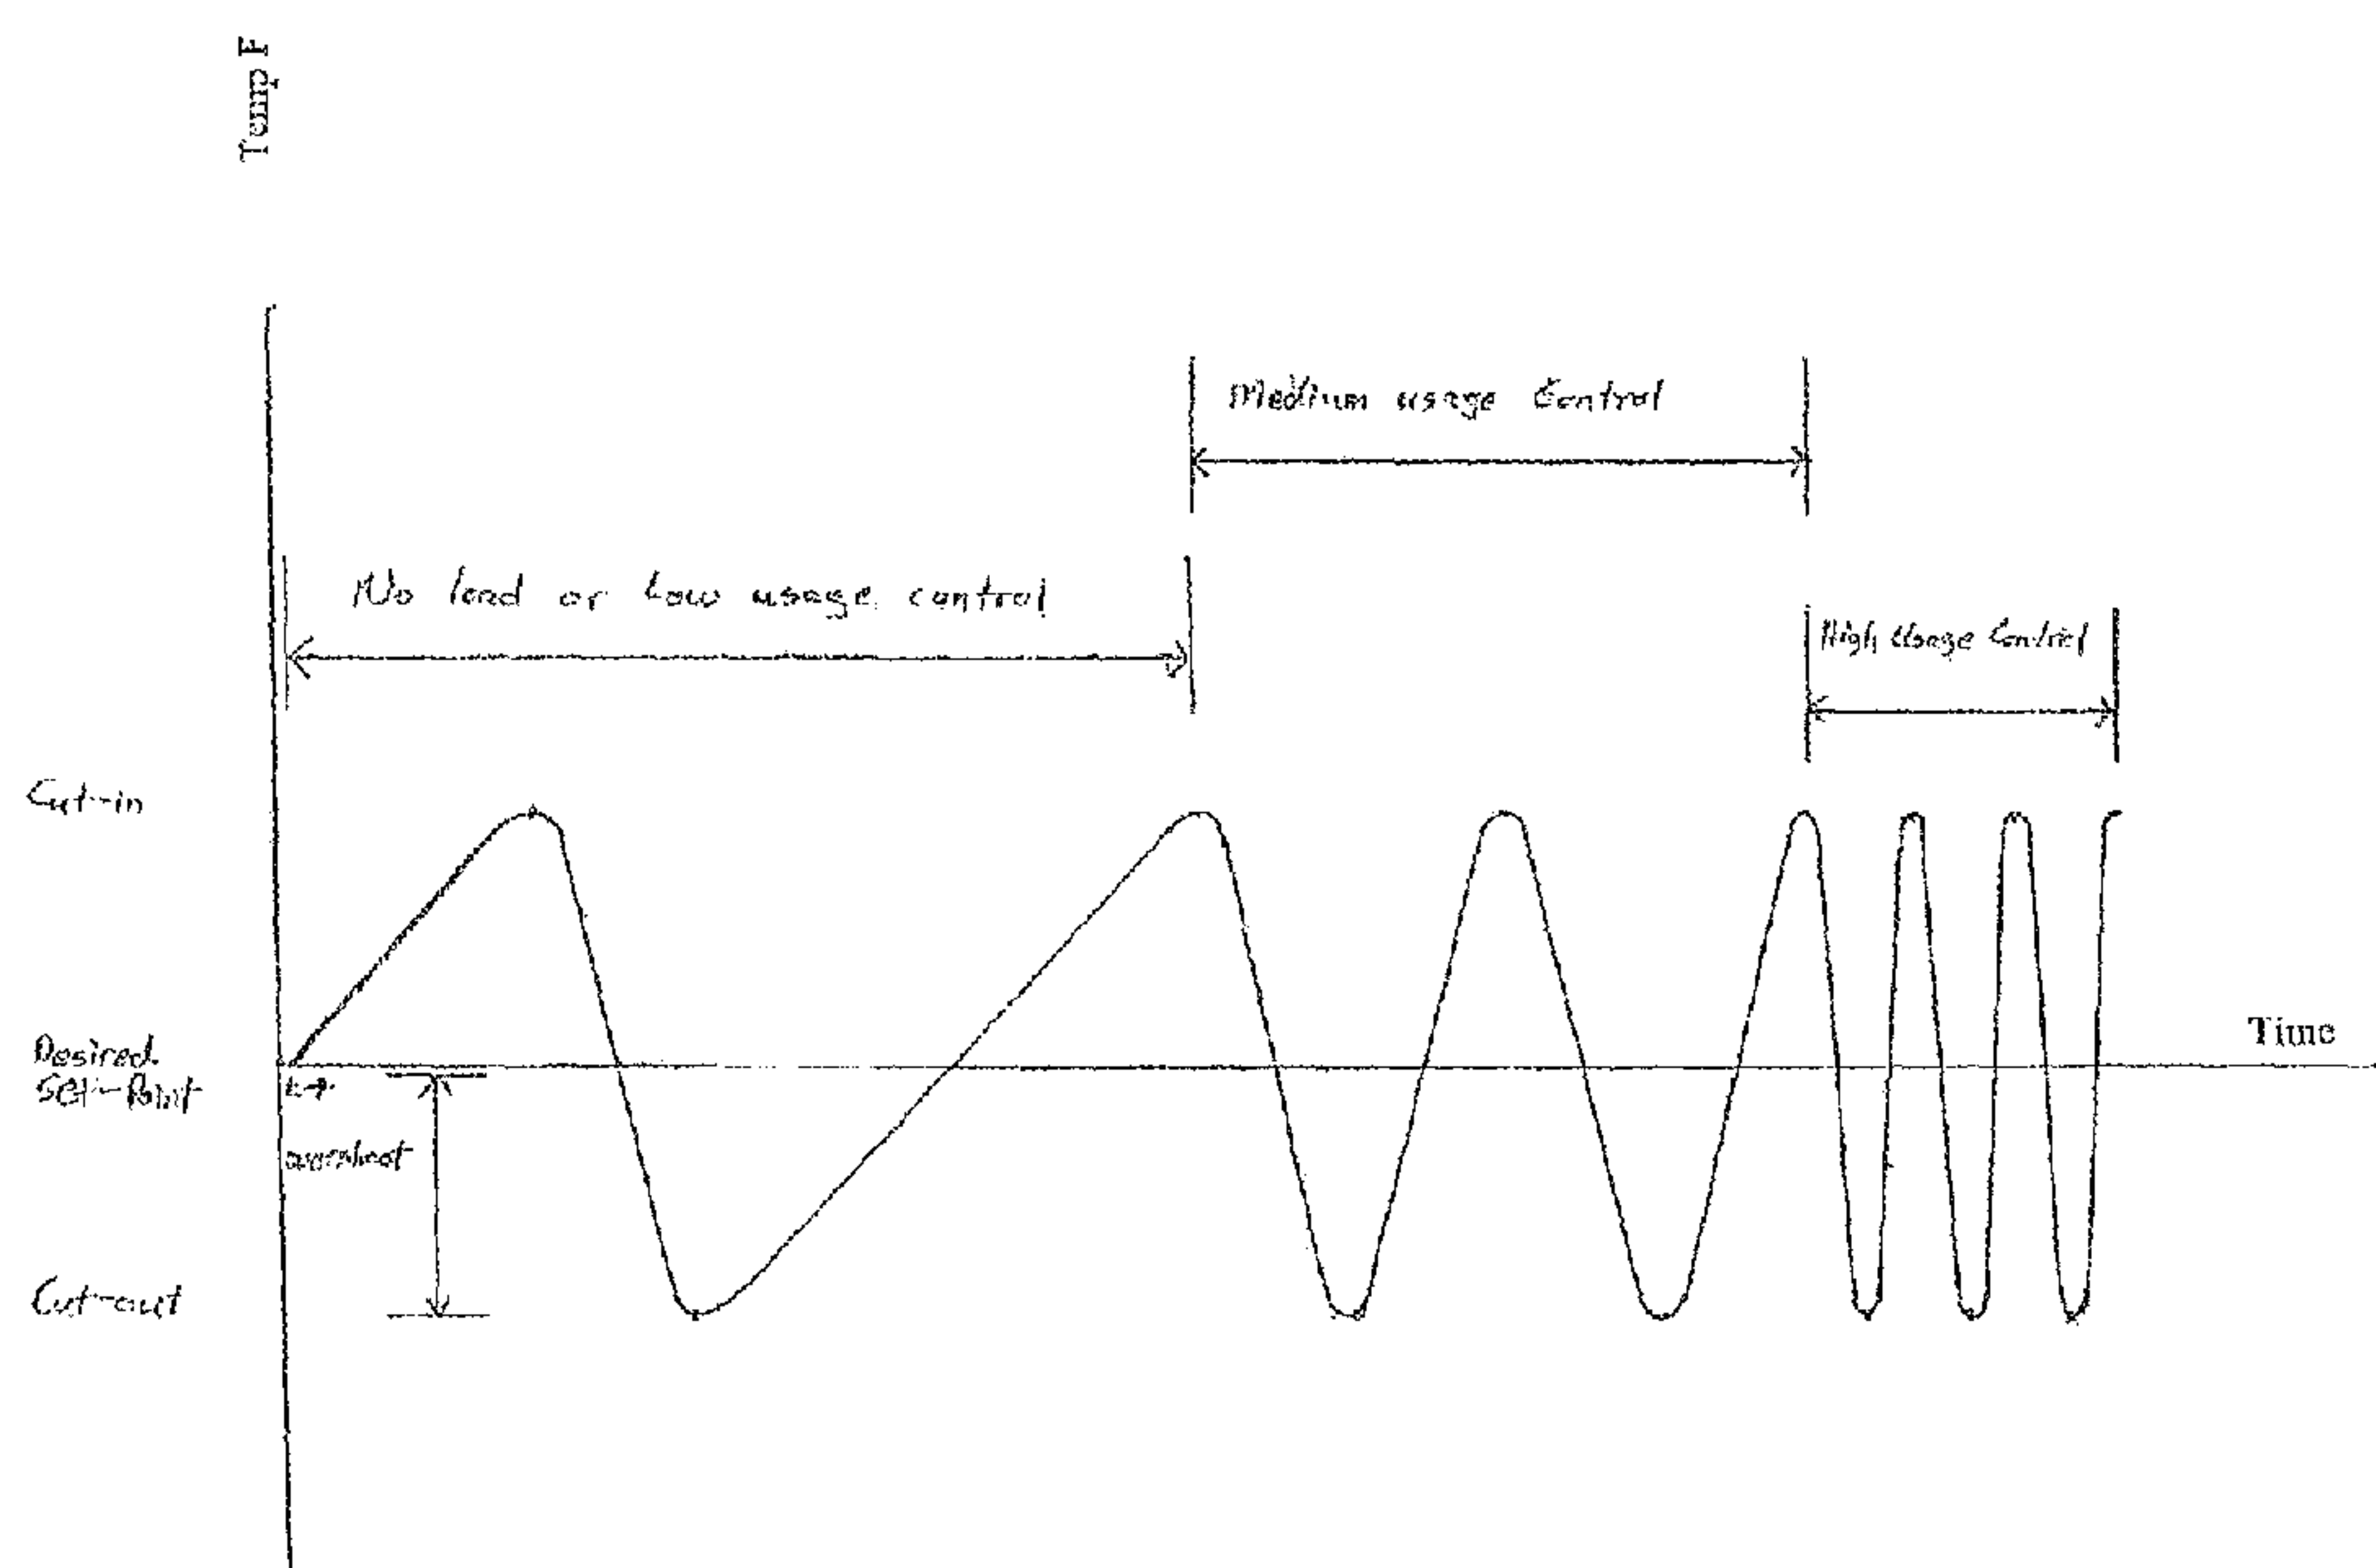 Temp F
Medium usage Control
No load or Low usage control
High Usage Control
Cut-in
Time
Desired
Set-Point
overshoot
Cut-out